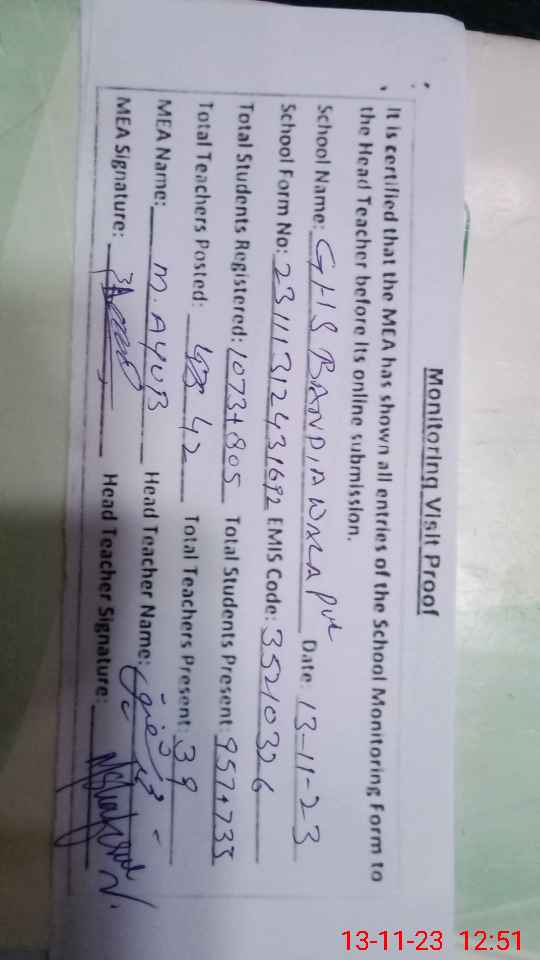 Monitoring Visit Proof
It is certified that the MEA has shown all entries of the School Monitoring Form to
the Head Teacher before its online submission.
School Name: GHS BANDIAWALA Date: 13-11-23
School Form No: 23111312431692 EMIS Code: 35210326
Total Students Registered: 1073+805 Total Students Present: 957+733
Total Teachers Posted: 42 Total Teachers Present: 39
MEA Name: M. AYUB Head Teacher Name:
MEA Signature: Head Teacher Signature:
13-11-23 12:51